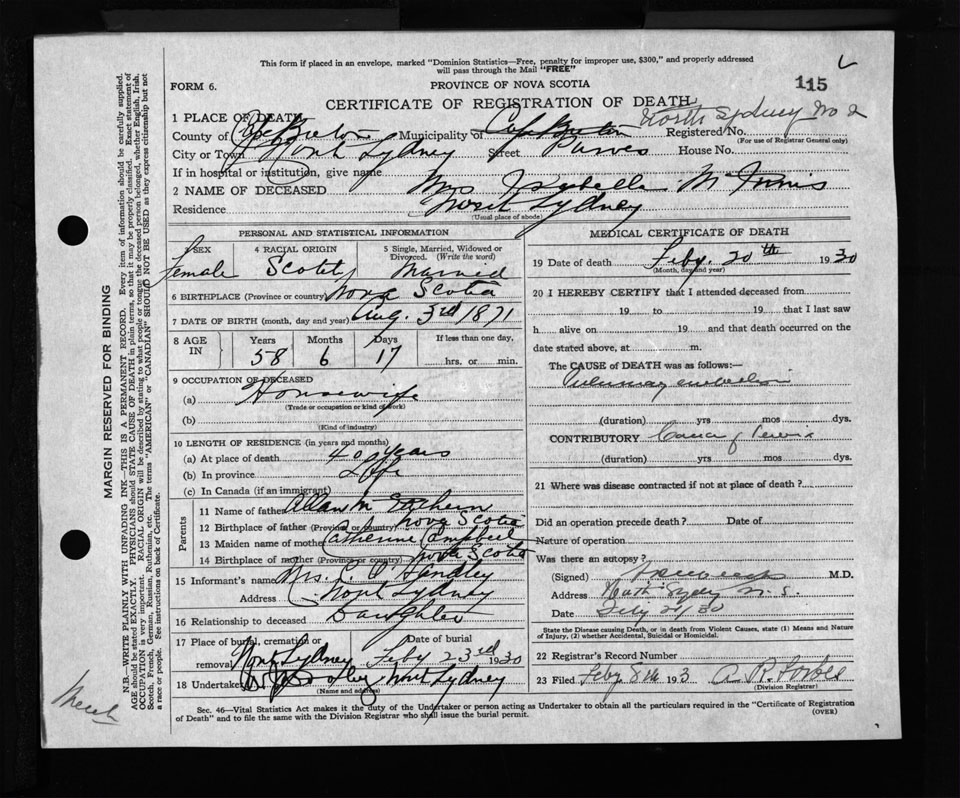 This form if placed in an envelope, marked "Dominion Statistics—Free, penalty for improper use, $300," and properly addressed
will pass through the Mail "FREE"
FORM 6.
PROVINCE OF NOVA SCOTIA
115
CERTIFICATE OF REGISTRATION OF DEATH
North Sydney No 2
1 PLACE OF DEATH
County of Cape Breton Municipality of Cape Breton Registered No.
(For use of Registrar General only)
City or Town North Sydney Street Purves House No.
If in hospital or institution, give name
2 NAME OF DECEASED Mrs Isabella McInnis
Residence North Sydney
(Usual place of abode)
PERSONAL AND STATISTICAL INFORMATION
3 SEX Female
4 RACIAL ORIGIN Scotch
5 Single, Married, Widowed or Divorced. (Write the word) Married
6 BIRTHPLACE (Province or country) Nova Scotia
7 DATE OF BIRTH (month, day and year) Aug. 3rd 1871
8 AGE IN Years 58 Months 6 Days 17 If less than one day, hrs. or min.
9 OCCUPATION OF DECEASED
(a) Housewife
(Trade or occupation or kind of work)
(b)
(Kind of industry)
10 LENGTH OF RESIDENCE (in years and months)
(a) At place of death 40 years
(b) In province Life
(c) In Canada (if an immigrant)
Parents
11 Name of father Allan McEachern
12 Birthplace of father (Province or country) Nova Scotia
13 Maiden name of mother Catherine Campbell
14 Birthplace of mother (Province or country) Nova Scotia
15 Informant's name Mrs.
Address North Sydney
16 Relationship to deceased Daughter
17 Place of burial, cremation or removal North Sydney Date of burial Feby 23rd 1930
18 Undertaker North Sydney
(Name and address)
MEDICAL CERTIFICATE OF DEATH
19 Date of death Feby. 20th 1930
(Month, day and year)
20 I HEREBY CERTIFY that I attended deceased from
19 to 19 that I last saw
h alive on 19 and that death occurred on the
date stated above, at m.
The CAUSE of DEATH was as follows:—
Pulmonary embolism
(duration) yrs mos dys.
CONTRIBUTORY Cancer of Cervix
(duration) yrs. mos. dys.
21 Where was disease contracted if not at place of death?
Did an operation precede death? Date of
Nature of operation
Was there an autopsy?
(Signed) M.D.
Address North Sydney N.S.
Date Feby /30
State the Disease causing Death, or in death from Violent Causes, state (1) Means and Nature of Injury, (2) whether Accidental, Suicidal or Homicidal.
22 Registrar's Record Number
23 Filed Feby 193 A. R. Forbes
(Division Registrar)
Sec. 46—Vital Statistics Act makes it the duty of the Undertaker or person acting as Undertaker to obtain all the particulars required in the "Certificate of Registration
of Death" and to file the same with the Division Registrar who shall issue the burial permit. (OVER)
MARGIN RESERVED FOR BINDING
N.B.—WRITE PLAINLY WITH UNFADING INK—THIS IS A PERMANENT RECORD. Every item of information should be carefully supplied.
AGE should be stated EXACTLY. PHYSICIANS should STATE CAUSE OF DEATH in plain terms, so that it may be properly classified. Exact statement of
OCCUPATION is very important. RACIAL ORIGIN will be described by stating to what people or tongue the deceased person belonged, whether English, Irish,
Scotch, French, German, Russian, Ruthenian, etc. The terms "AMERICAN" or "CANADIAN" SHOULD NOT BE USED as they express citizenship but not
a race or people. See instructions on back of Certificate.